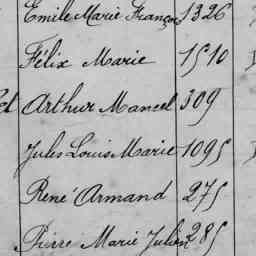 Emile Marie François 1326
Félix Marie 1510
Arthur Marcel 309
Jules Louis Marie 1095
René Armand 275
Pierre Marie Julien 285